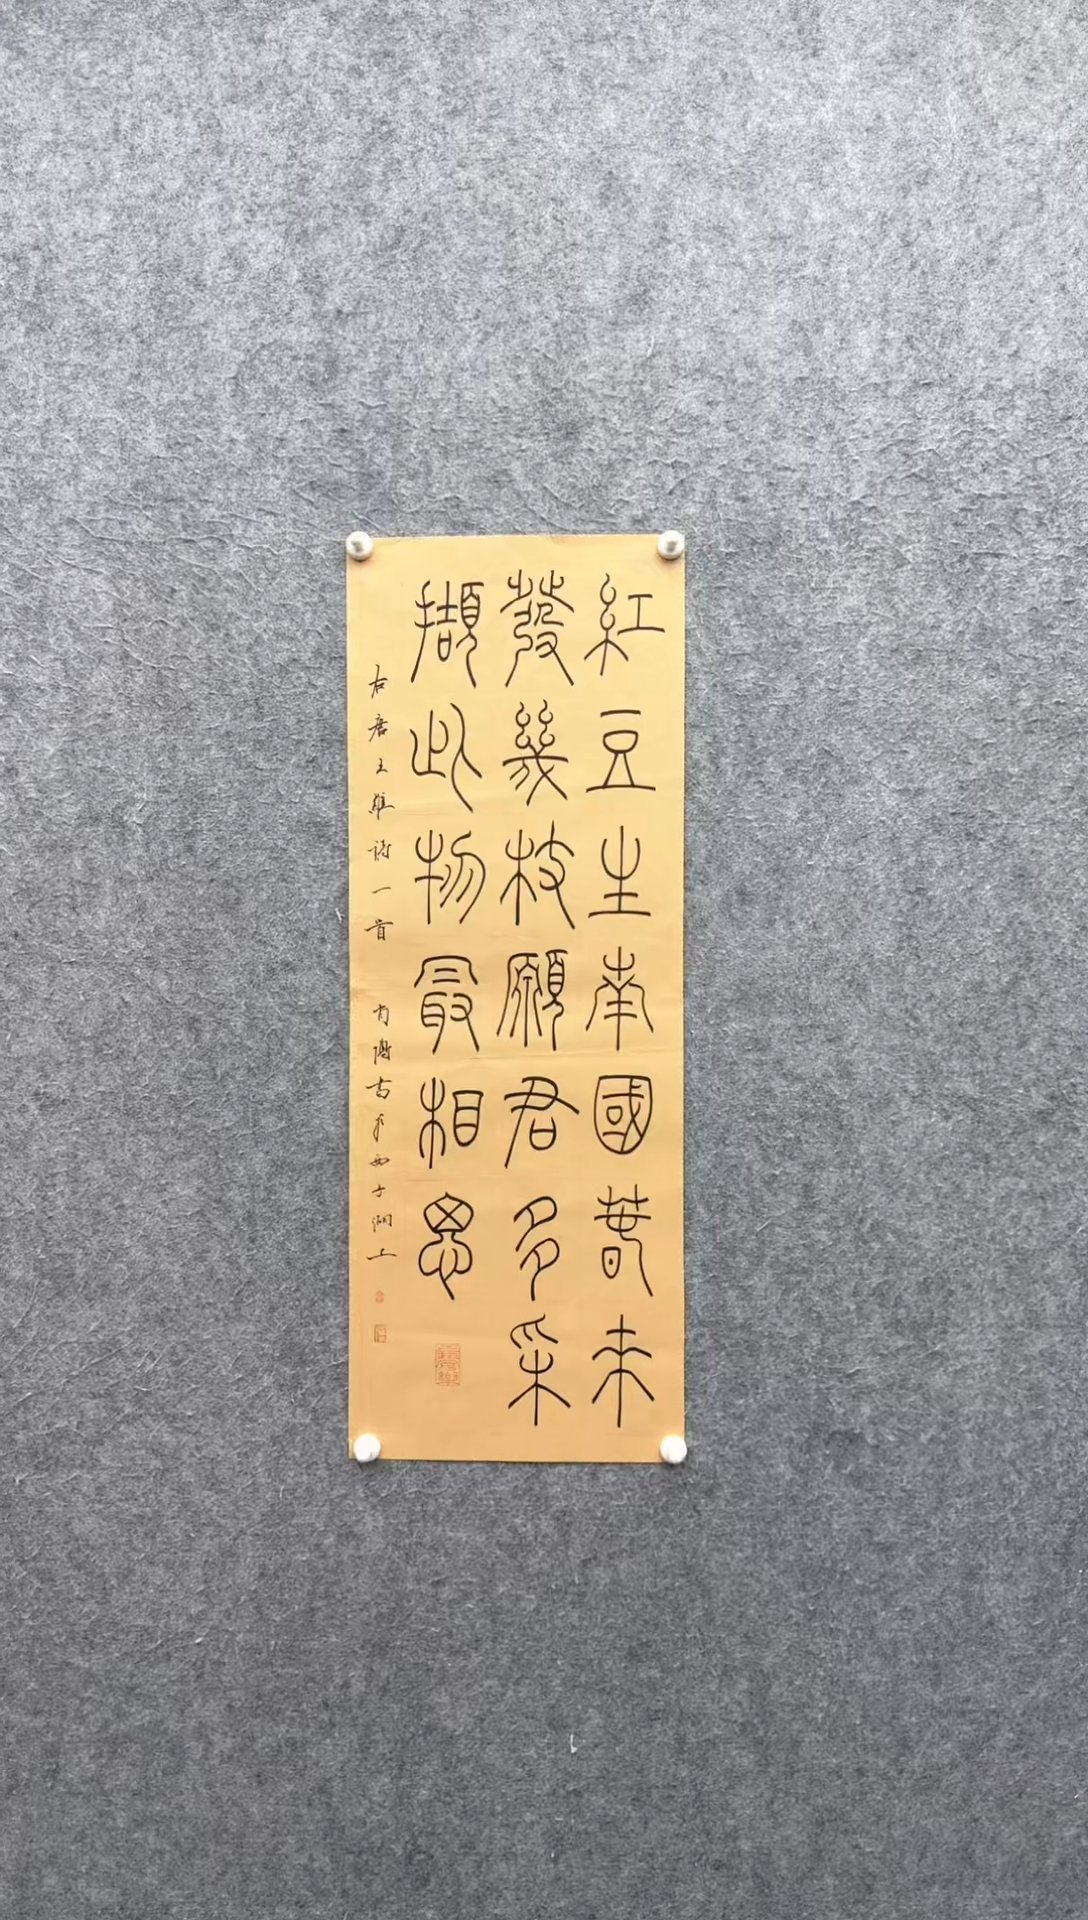 紅豆生南國萅來
發幾枝願君多采
擷此物最相思
右唐王維詩一首 於西子湖上